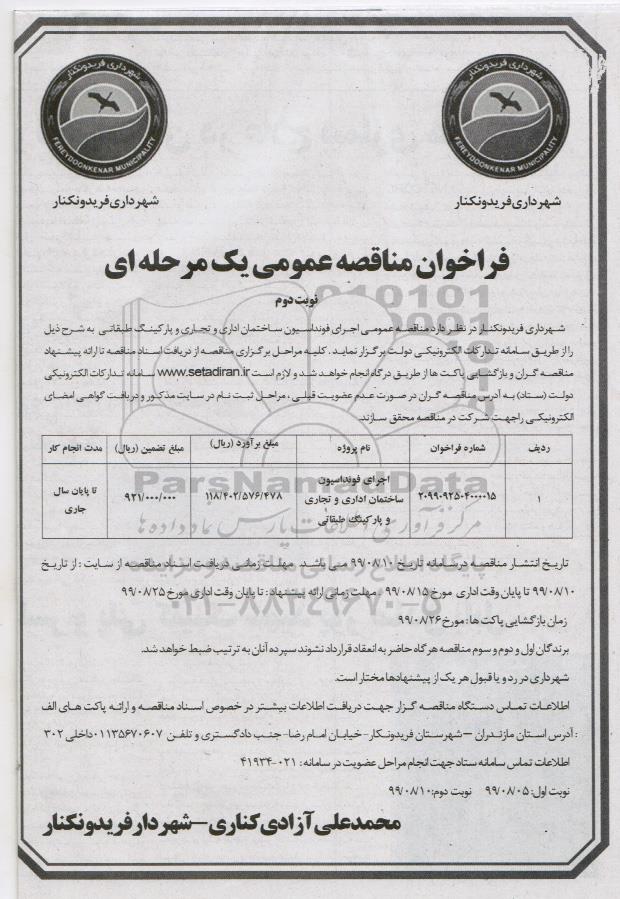 شهرداری فریدونکنار
FEREYDOONKENAR MUNICIPALITY
شهرداری فریدونکنار
FEREYDOONKENAR MUNICIPALITY
شهرداری فریدونکنار
شهرداری فریدونکنار
فراخوان مناقصه عمومی یک مرحله ای
نوبت دوم
شهرداری فریدونکنار در نظر دارد مناقصه عمومی اجرای فونداسیون ساختمان اداری و تجاری و پارکینگ طبقاتی به شرح ذیل
را از طریق سامانه تدارکات الکترونیکی دولت برگزار نماید. کلیه مراحل برگزاری مناقصه از دریافت اسناد مناقصه تا ارائه پیشنهاد
مناقصه گران و بازگشایی پاکت ها از طریق درگاه انجام خواهد شد و لازم است www.setadiran.ir سامانه تدارکات الکترونیکی
دولت (ستاد) به آدرس مناقصه گران در صورت عدم عضویت قبلی، مراحل ثبت نام در سایت مذکور و دریافت گواهی امضای
الکترونیکی را جهت شرکت در مناقصه محقق سازند.
ردیف شماره فراخوان نام پروژه مبلغ برآورد (ریال) مبلغ تضمین (ریال) مدت انجام کار
۱ ۲۰۹۹۰۹۲۵۰۴۰۰۰۰۱۵ اجرای فونداسیون ساختمان اداری و تجاری و پارکینگ طبقاتی ۱۱۸/۴۰۲/۵۷۶/۴۷۸ ۹۲۱/۰۰۰/۰۰۰ تا پایان سال جاری
تاریخ انتشار مناقصه در سامانه تاریخ ۹۹/۰۸/۱۰ می باشد. مهلت زمانی دریافت اسناد مناقصه از سایت : از تاریخ
۹۹/۰۸/۱۰ تا پایان وقت اداری مورخ ۹۹/۰۸/۱۵ . مهلت زمانی ارائه پیشنهاد : تا پایان وقت اداری مورخ ۹۹/۰۸/۲۵
زمان بازگشایی پاکت ها : مورخ ۹۹/۰۸/۲۶
برندگان اول و دوم و سوم مناقصه هرگاه حاضر به انعقاد قرارداد نشوند سپرده آنان به ترتیب ضبط خواهد شد.
شهرداری در رد و یا قبول هر یک از پیشنهادها مختار است.
اطلاعات تماس دستگاه مناقصه گزار جهت دریافت اطلاعات بیشتر در خصوص اسناد مناقصه و ارائه پاکت های الف
: آدرس استان مازندران – شهرستان فریدونکنار - خیابان امام رضا - جنب دادگستری و تلفن ۰۱۱۳۵۶۷۰۶۰۷ داخلی ۳۰۲
اطلاعات تماس سامانه ستاد جهت انجام مراحل عضویت در سامانه : ۰۲۱-۴۱۹۳۴
نوبت اول: ۹۹/۰۸/۰۵ نوبت دوم: ۹۹/۰۸/۱۰
محمدعلی آزادی کناری – شهردار فریدونکنار
ParsNamadData
مرکز فرآوری اطلاعات پارس نماد داده ها
پایگاه اطلاع رسانی مناقصه و مزایده
۰۲۱-۸۸۳۴۹۶۷۰-۵